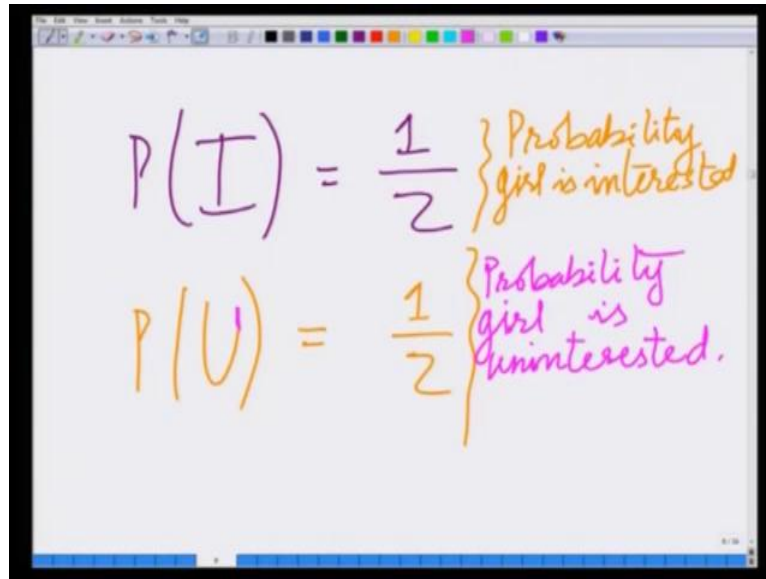 File Edit View Insert Actions Tools Help
P(I) = 1/2 } Probability
girl is interested
P(U) = 1/2 } Probability
girl is
uninterested.